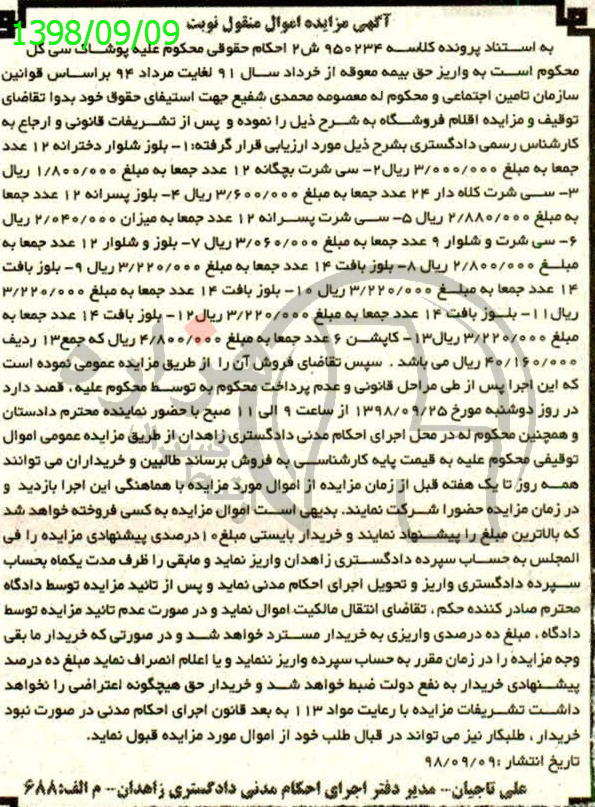 آگهی مزایده اموال منقول نوبت
1398/09/09
به استناد پرونده کلاسه ۹۵۰۲۳۴ ش۲ احکام حقوقی محکوم علیه پوشاک سی گل
محکوم است به واریز حق بیمه معوقه از خرداد سال ۹۱ لغایت مرداد ۹۴ براساس قوانین
سازمان تامین اجتماعی و محکوم له معصومه محمدی شفیع جهت استیفای حقوق خود بدوا تقاضای
توقیف و مزایده اقلام فروشگاه به شرح ذیل را نموده و پس از تشریفات قانونی و ارجاع به
کارشناس رسمی دادگستری بشرح ذیل مورد ارزیابی قرار گرفته:۱- بلوز شلوار دخترانه ۱۲ عدد
جمعا به مبلغ ۳/۰۰۰/۰۰۰ ریال۲- سی شرت بچگانه ۱۲ عدد جمعا به مبلغ ۱/۸۰۰/۰۰۰ ریال
۳- سی شرت کلاه دار ۲۴ عدد جمعا به مبلغ ۳/۶۰۰/۰۰۰ ریال ۴- بلوز پسرانه ۱۲ عدد جمعا
به مبلغ ۲/۸۸۰/۰۰۰ ریال ۵- سی شرت پسرانه ۱۲ عدد جمعا به میزان ۲/۰۴۰/۰۰۰ ریال
۶- سی شرت و شلوار ۹ عدد جمعا به مبلغ ۳/۰۶۰/۰۰۰ ریال ۷- بلوز و شلوار ۱۲ عدد جمعا به
مبلغ ۲/۸۰۰/۰۰۰ ریال ۸- بلوز بافت ۱۴ عدد جمعا به مبلغ ۳/۲۲۰/۰۰۰ ریال ۹- بلوز بافت
۱۴ عدد جمعا به مبلغ ۳/۲۲۰/۰۰۰ ریال ۱۰- بلوز بافت ۱۴ عدد جمعا به مبلغ ۳/۲۲۰/۰۰۰
ریال۱۱- بلوز بافت ۱۴ عدد جمعا به مبلغ ۳/۲۲۰/۰۰۰ ریال۱۲- بلوز بافت ۱۴ عدد جمعا به
مبلغ ۳/۲۲۰/۰۰۰ ریال۱۳- کاپشن ۶ عدد جمعا به مبلغ ۴/۸۰۰/۰۰۰ ریال که جمع۱۳ ردیف
۴۰/۱۶۰/۰۰۰ ریال می باشد . سپس تقاضای فروش آن را از طریق مزایده عمومی نموده است
که این اجرا پس از طی مراحل قانونی و عدم پرداخت محکوم به توسط محکوم علیه ، قصد دارد
در روز دوشنبه مورخ ۱۳۹۸/۰۹/۲۵ از ساعت ۹ الی ۱۱ صبح با حضور نماینده محترم دادستان
و همچنین محکوم له در محل اجرای احکام مدنی دادگستری زاهدان از طریق مزایده عمومی اموال
توقیفی محکوم علیه به قیمت پایه کارشناسی به فروش برساند طالبین و خریداران می توانند
همه روز تا یک هفته قبل از زمان مزایده از اموال مورد مزایده با هماهنگی این اجرا بازدید و
در زمان مزایده حضورا شرکت نمایند. بدیهی است اموال مزایده به کسی فروخته خواهد شد
که بالاترین مبلغ را پیشنهاد نمایند و خریدار بایستی مبلغ۱۰درصدی پیشنهادی مزایده را فی
المجلس به حساب سپرده دادگستری زاهدان واریز نماید و مابقی را ظرف مدت یکماه بحساب
سپرده دادگستری واریز و تحویل اجرای احکام مدنی نماید و پس از تائید مزایده توسط دادگاه
محترم صادر کننده حکم ، تقاضای انتقال مالکیت اموال نماید و در صورت عدم تائید مزایده توسط
دادگاه ، مبلغ ده درصدی واریزی به خریدار مسترد خواهد شد و در صورتی که خریدار ما بقی
وجه مزایده را در زمان مقرر به حساب سپرده واریز ننماید و یا اعلام انصراف نماید مبلغ ده درصد
پیشنهادی خریدار به نفع دولت ضبط خواهد شد و خریدار حق هیچگونه اعتراضی را نخواهد
داشت تشریفات مزایده با رعایت مواد ۱۱۳ به بعد قانون اجرای احکام مدنی در صورت نبود
خریدار ، طلبکار نیز می تواند در قبال طلب خود از اموال مورد مزایده قبول نماید.
تاریخ انتشار :۹۸/۰۹/۰۹
علی تاجیان-- مدیر دفتر اجرای احکام مدنی دادگستری زاهدان-- م الف:۶۸۸